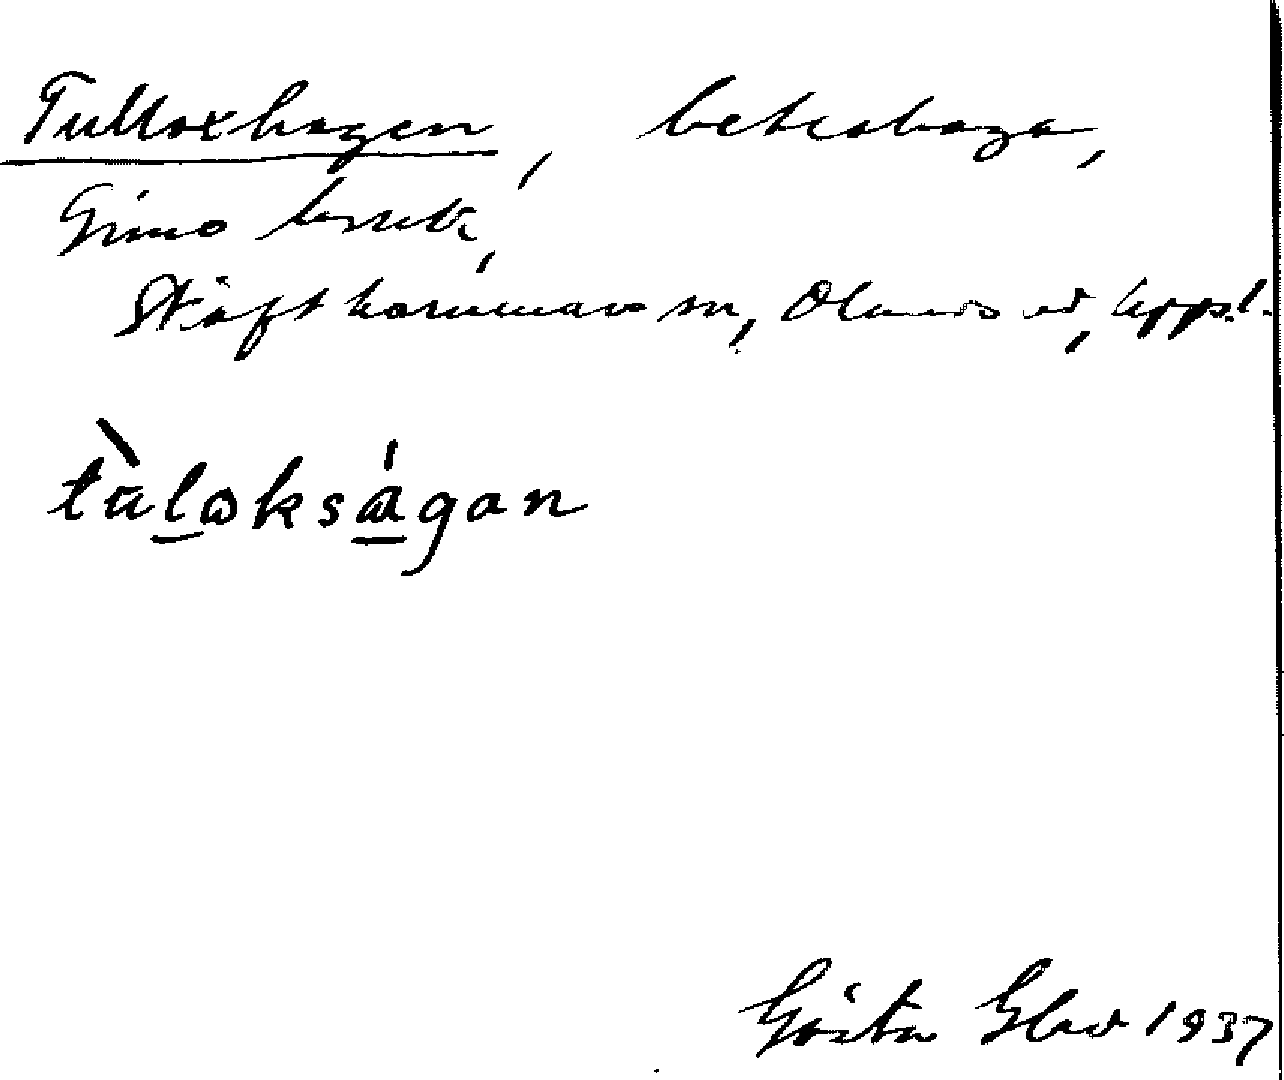 Tulloxhagen, beteshage,
Gimo bruk,
Skäfthammars sn, Olands hd, Uppl.
tùlokságan
Gösta 1937